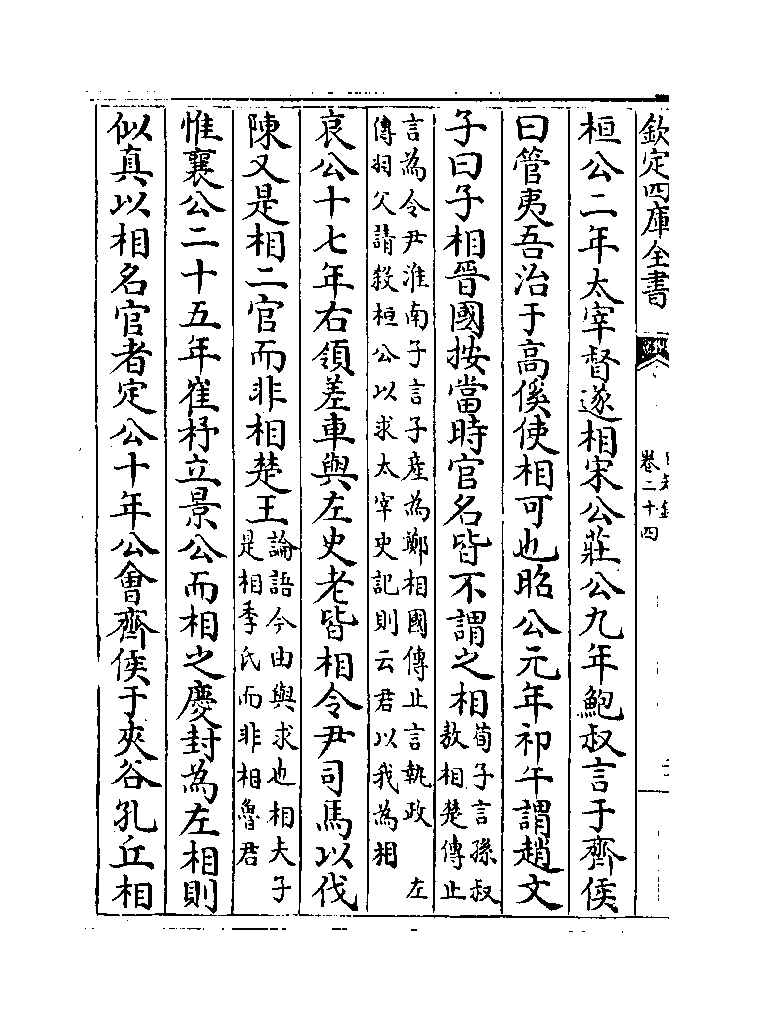 欽定四庫全書
卷二十四
桓公二年太宰督遂相宋公莊公九年鮑叔言于齊侯
曰管夷吾治于高傒使相可也昭公元年祁午謂趙文
子曰子相晉國按當時官名皆不謂之相
荀子言孫叔
敖相楚傳止
言為令尹淮南子言子產為鄭相國傳止言執政 左
傳羽父請殺桓公以求太宰史記則云君以我為相
哀公十七年右領差車與左史老皆相令尹司馬以伐
陳又是相二官而非相楚王
論語今由與求也相夫子
是相季氏而非相魯君
惟襄公二十五年崔杼立景公而相之慶封為左相則
似真以相名官者定公十年公會齊侯于夾谷孔丘相